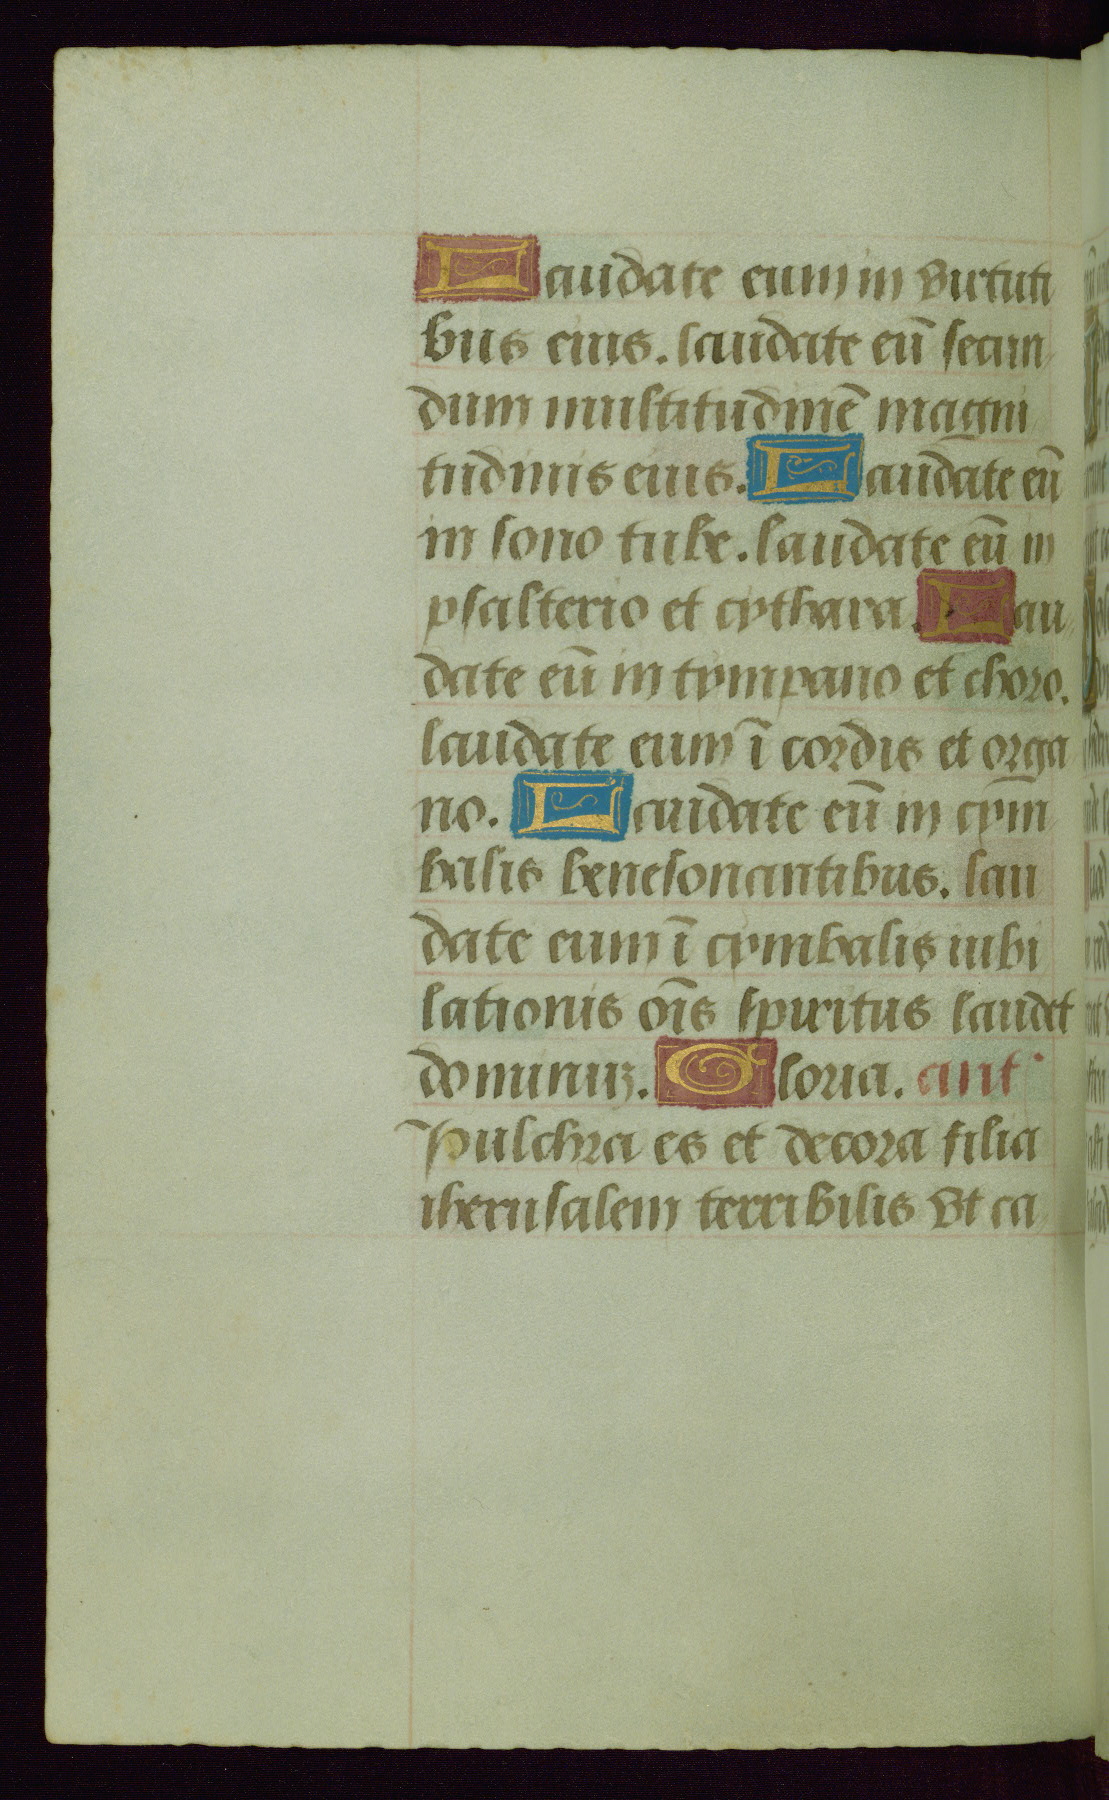 Laudate eum in virtuti
bus eius. laudate eū secun
dum multitudinē magni
tudinis eius. Laudate eū
in sono tube. laudate eū in
psalterio et cythara. Lau
date eū in tympano et choro.
laudate eum ī cordis et orga
no. Laudate eū in cym
balis benesonantibus. lau
date eum ī cymbalis iubi
lationis oīs spiritus laudet
dominuꝫ. Gloria. ant
Pulchra es et decora filia
iherusalem terribilis vt ca